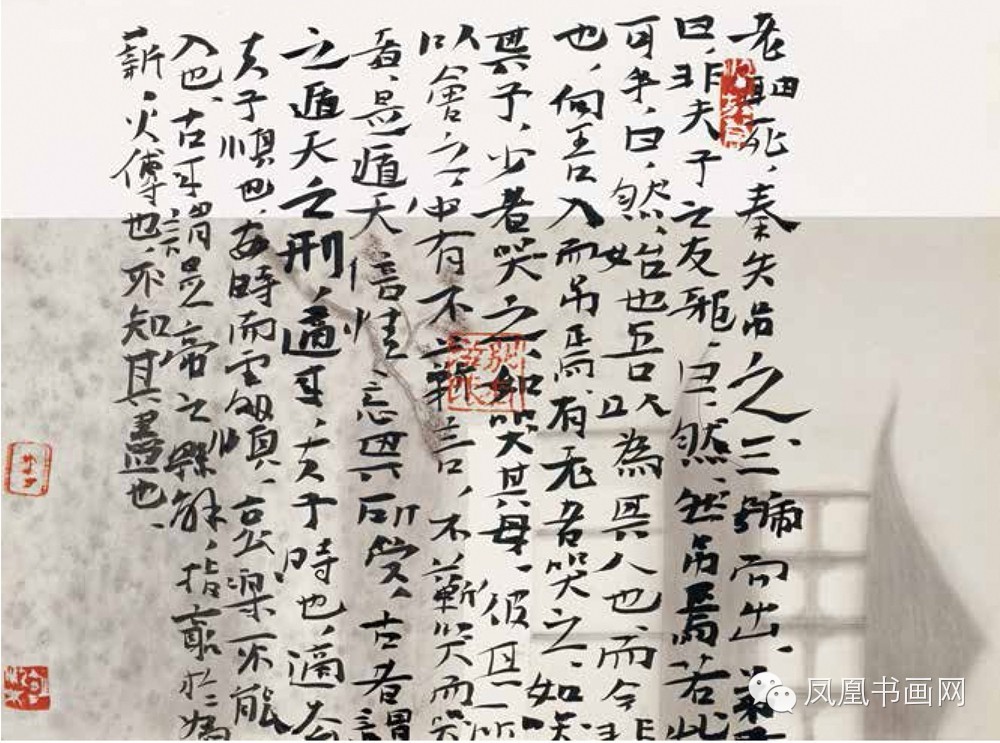 老聃死，秦失吊之，三號而出，弟子
曰，非夫子之友邪，曰，然，然吊焉若此
可乎，曰，然，始也吾以為其人也，而今非
也，向吾入而吊焉，有老者哭之，如哭
其子，少者哭之，如哭其母，彼其所
以會之，中有不蘄言，不蘄哭而哭
者，是遁天倍情，忘其所受，古者謂
之遁天之刑，適來，夫子時也，適去
夫子順也，安時而處順，哀樂不能
入也，古者謂是帝之縣解，指窮於為
薪，火傳也，不知其盡也、
凤凰书画网